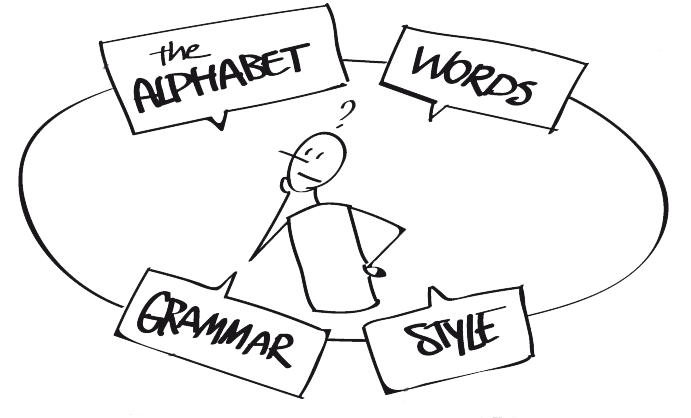 the
ALPHABET
WORDS
?
GRAMMAR
STYLE